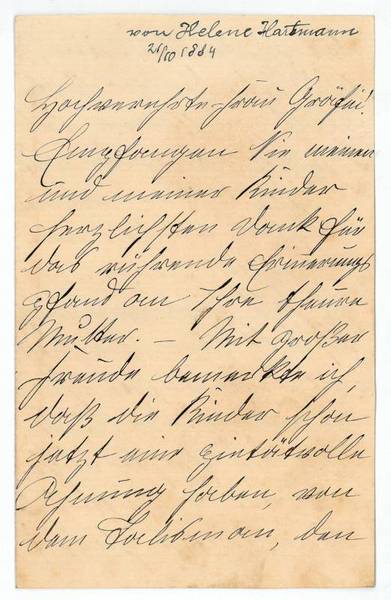 von Helene Hartmann
21/10 1884
Hochverehrte Frau Gräfin!
Empfangen Sie meinen
und meiner Kinder
herzlichsten Dank für
das rührende Erinnerungs
pfand an Ihre theure
Mutter. — Mit großer
Freude bemerkte ich,
daß die Kinder schon
jetzt eine pietätvolle
Ahnung haben, von
dem Talisman, den